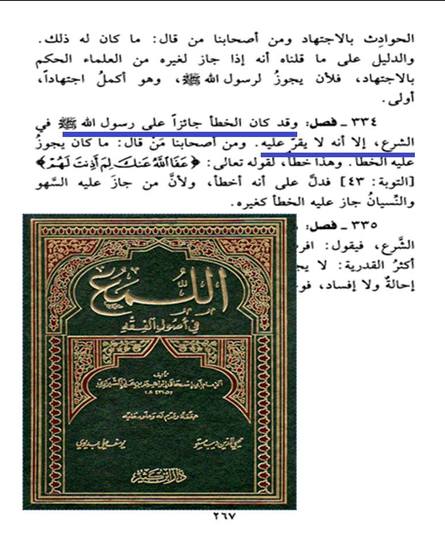 الحوادث بالاجتهاد ومن أصحابنا من قال: ما كان له ذلك.
والدليل على ما قلناه أنه إذا جاز لغيره من العلماء الحكم
بالاجتهاد، فلأن يجوزُ لرسول الله ﷺ، وهو أكملُ اجتهاداً،
أولى.
٣٣٤ ـ فصل: وقد كان الخطأ جائزاً على رسول الله ﷺ في
الشرع، إلا أنه لا يقرّ عليه. ومن أصحابنا مَنْ قال: ما كان يجوزُ
عليه الخطأ. وهذا خطأ، لقوله تعالى: ﴿عَفَا اللَّهُ عَنكَ لِمَ أَذِنتَ لَهُمْ﴾
[التوبة: ٤٣] فدلَّ على أنه أخطأ، ولأنَّ من جازَ عليه السهو
والنِّسيانُ جاز عليه الخطأ كغيره.
٣٣٥ ـ فصل:
الشَّرع، فيقول: افر
أكثرُ القدرية: لا يج
إحالةٌ ولا إفساد، فو
اللمع
في أصول الفقه
تأليف
حققه وقدم له وعلق عليه
محيي الدين ديب مستو
يوسف علي بديوي
دار ابن كثير
٢٦٧